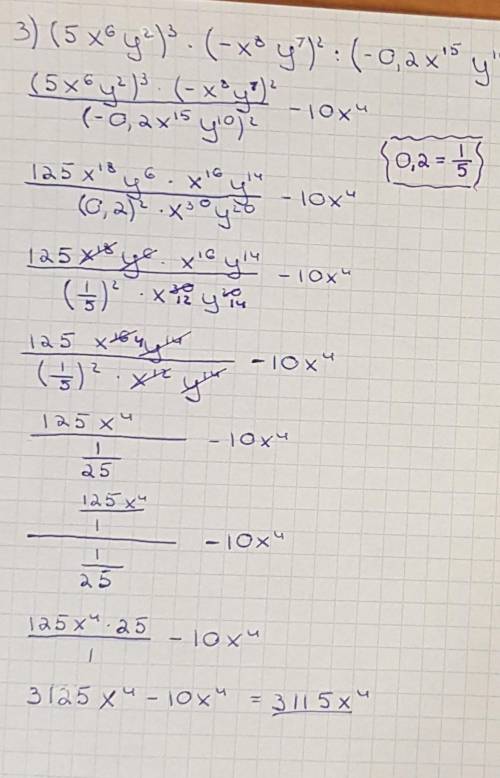 3) (5x⁶y²)³ · (-x⁸y⁷)² : (-0,2x¹⁵y¹
(5x⁶y²)³ · (-x⁸y⁷)² / (-0,2x¹⁵y¹⁰)² - 10x⁴
0,2 = 1/5
125x¹⁸y⁶ · x¹⁶y¹⁴ / (0,2)² · x³⁰y²⁰ - 10x⁴
125x¹⁸y⁶ · x¹⁶y¹⁴ / (1/5)² · x³⁰ 12 y²⁰ 14 - 10x⁴
125x¹⁶ 4 y¹⁴ / (1/5)² · x¹² y¹⁴ - 10x⁴
125x⁴ / 1/25 - 10x⁴
125x⁴/1 / 1/25 - 10x⁴
125x⁴·25 / 1 - 10x⁴
3125x⁴ - 10x⁴ = 3115x⁴